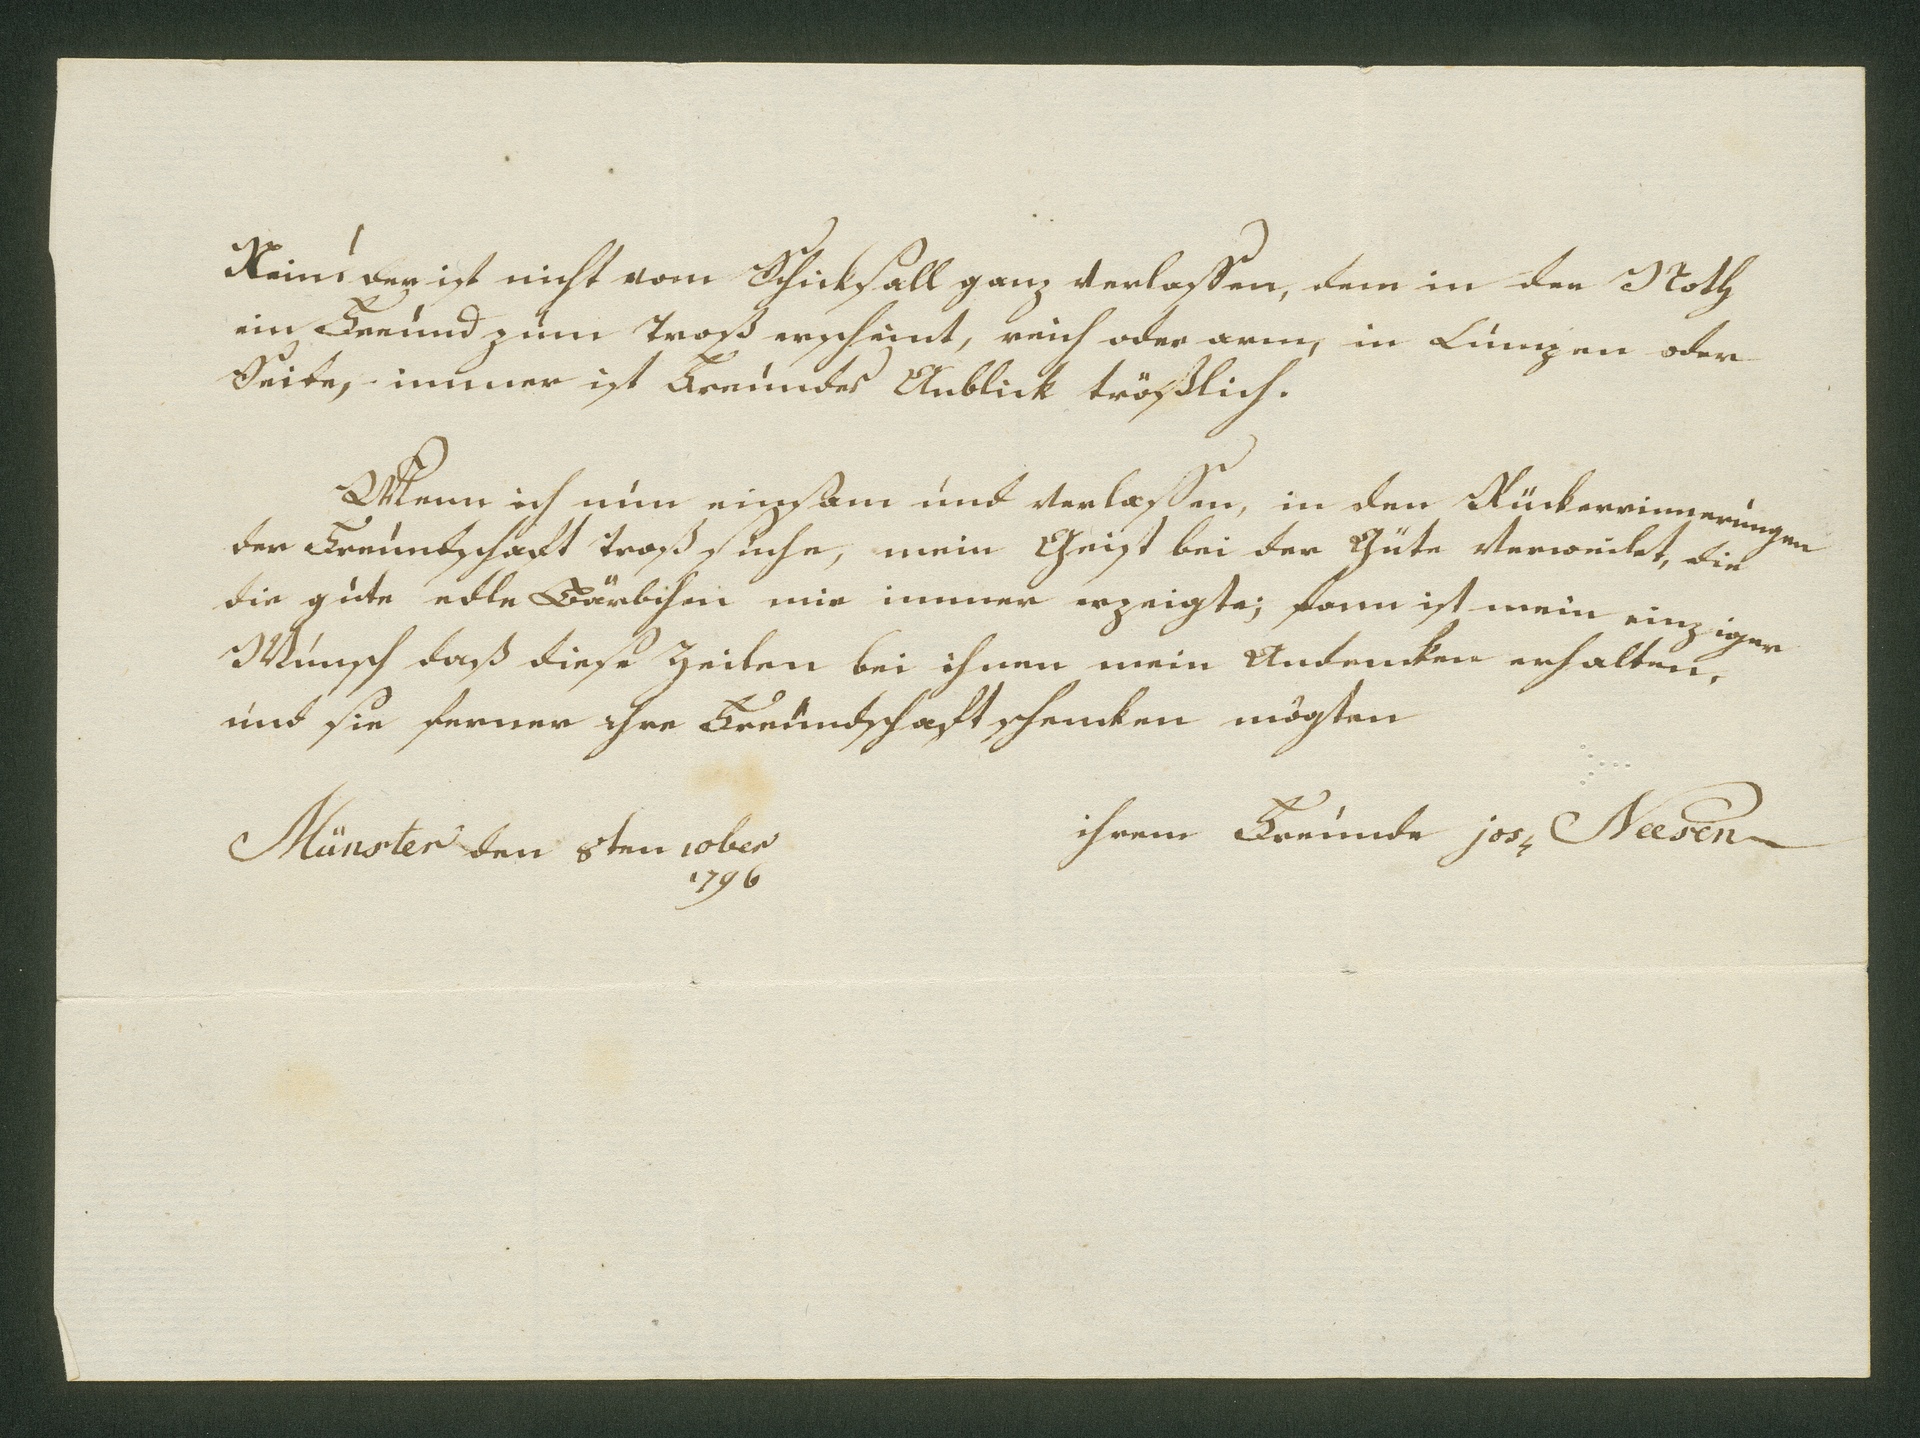 Nein! der ist nicht vom Schicksall ganz verlassen, dem in der Noth
ein Freund zum Trost erscheint, reich oder arm, in Lumpen oder
Seide, immer ist Freundes Anblick tröstlich.
Wenn ich nun einsam und verlassen, in den Rückerrinnerungen
der Freundschaft Trost suche, mein Geist bei der Güte verweilet, die
die gute edle Bärbchen mir immer erzeigte; dann ist mein einziger
Wunsch daß diese Zeilen bei ihnen mein Andencken erhalten,
und sie ferner ihre Freundschaft schencken mögten
ihrem Freunde jos. Neesen
Münster den 8ten 10ber
1796